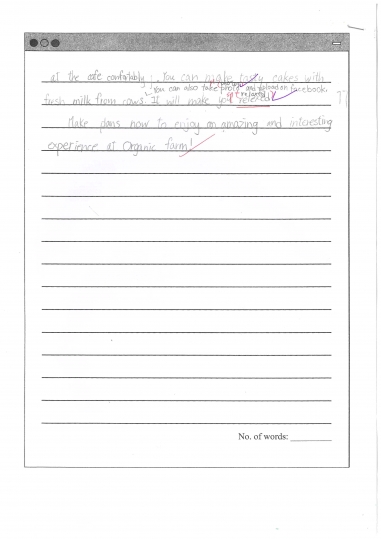 at the cafe comfortably! You can make tasty cakes with
You can also take photo and upload on facebook
fresh milk from cows. It will make you relaxed
get relaxed
Make plans now to enjoy an amazing and interesting
experience at Organic farm!
No. of words: